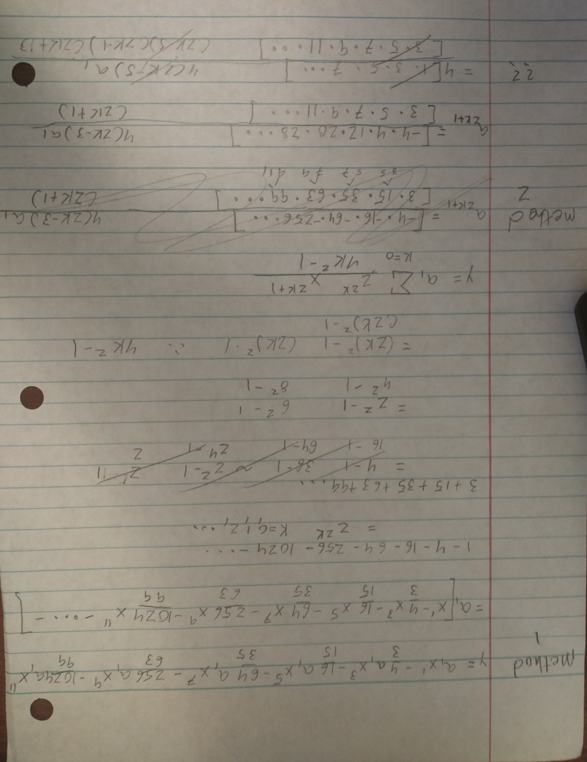 method 1
y = a₁x¹ - 4/3 a₁x³ - 16/15 a₁x⁵ - 64/35 a₁x⁷ - 256/63 a₁x⁹ - 1024/99 a₁x¹¹
= a₁[x¹ - 4/3 x³ - 16/15 x⁵ - 64/35 x⁷ - 256/63 x⁹ - 1024/99 x¹¹ - ..... - ]
1 - 4 - 16 - 64 - 256 - 1024 - ....
= 2^2k k = 0, 1, 2, ...
3 + 15 + 35 + 63 + 99 ....
= 4 - 1 36 - 1 ~ 2² - 1
16 - 1 64 - 1 24 - 1 2
= 2² - 1 6² - 1
4² - 1 8² - 1
= (2k)² - 1 (2k)² · 1 ∴ 4k² - 1
(2k)² - 1
y = a₁ Σ k=0 2^2k x^2k+1) / 4k² - 1
method 2
a₂ₖ₊₁ = [-4 · -16 · -64 · -256 · ...] / [3 · 15 · 35 · 63 · 99 ....] 4(2k-3)a₁ / (2k+1)
a₂ₖ₊₁ = [-4 · 4 · 12 · 20 · 28 ....] / [3 · 5 · 7 · 9 · 11 ....] 4(2k-3)a₁ / (2k+1)
= 4[1 · 3 · 5 · 7 ....] / [3 · 5 · 7 · 9 · 11 ....] 4(2k-5)a₁ / (2k-3)(2k-1)(2k+1)